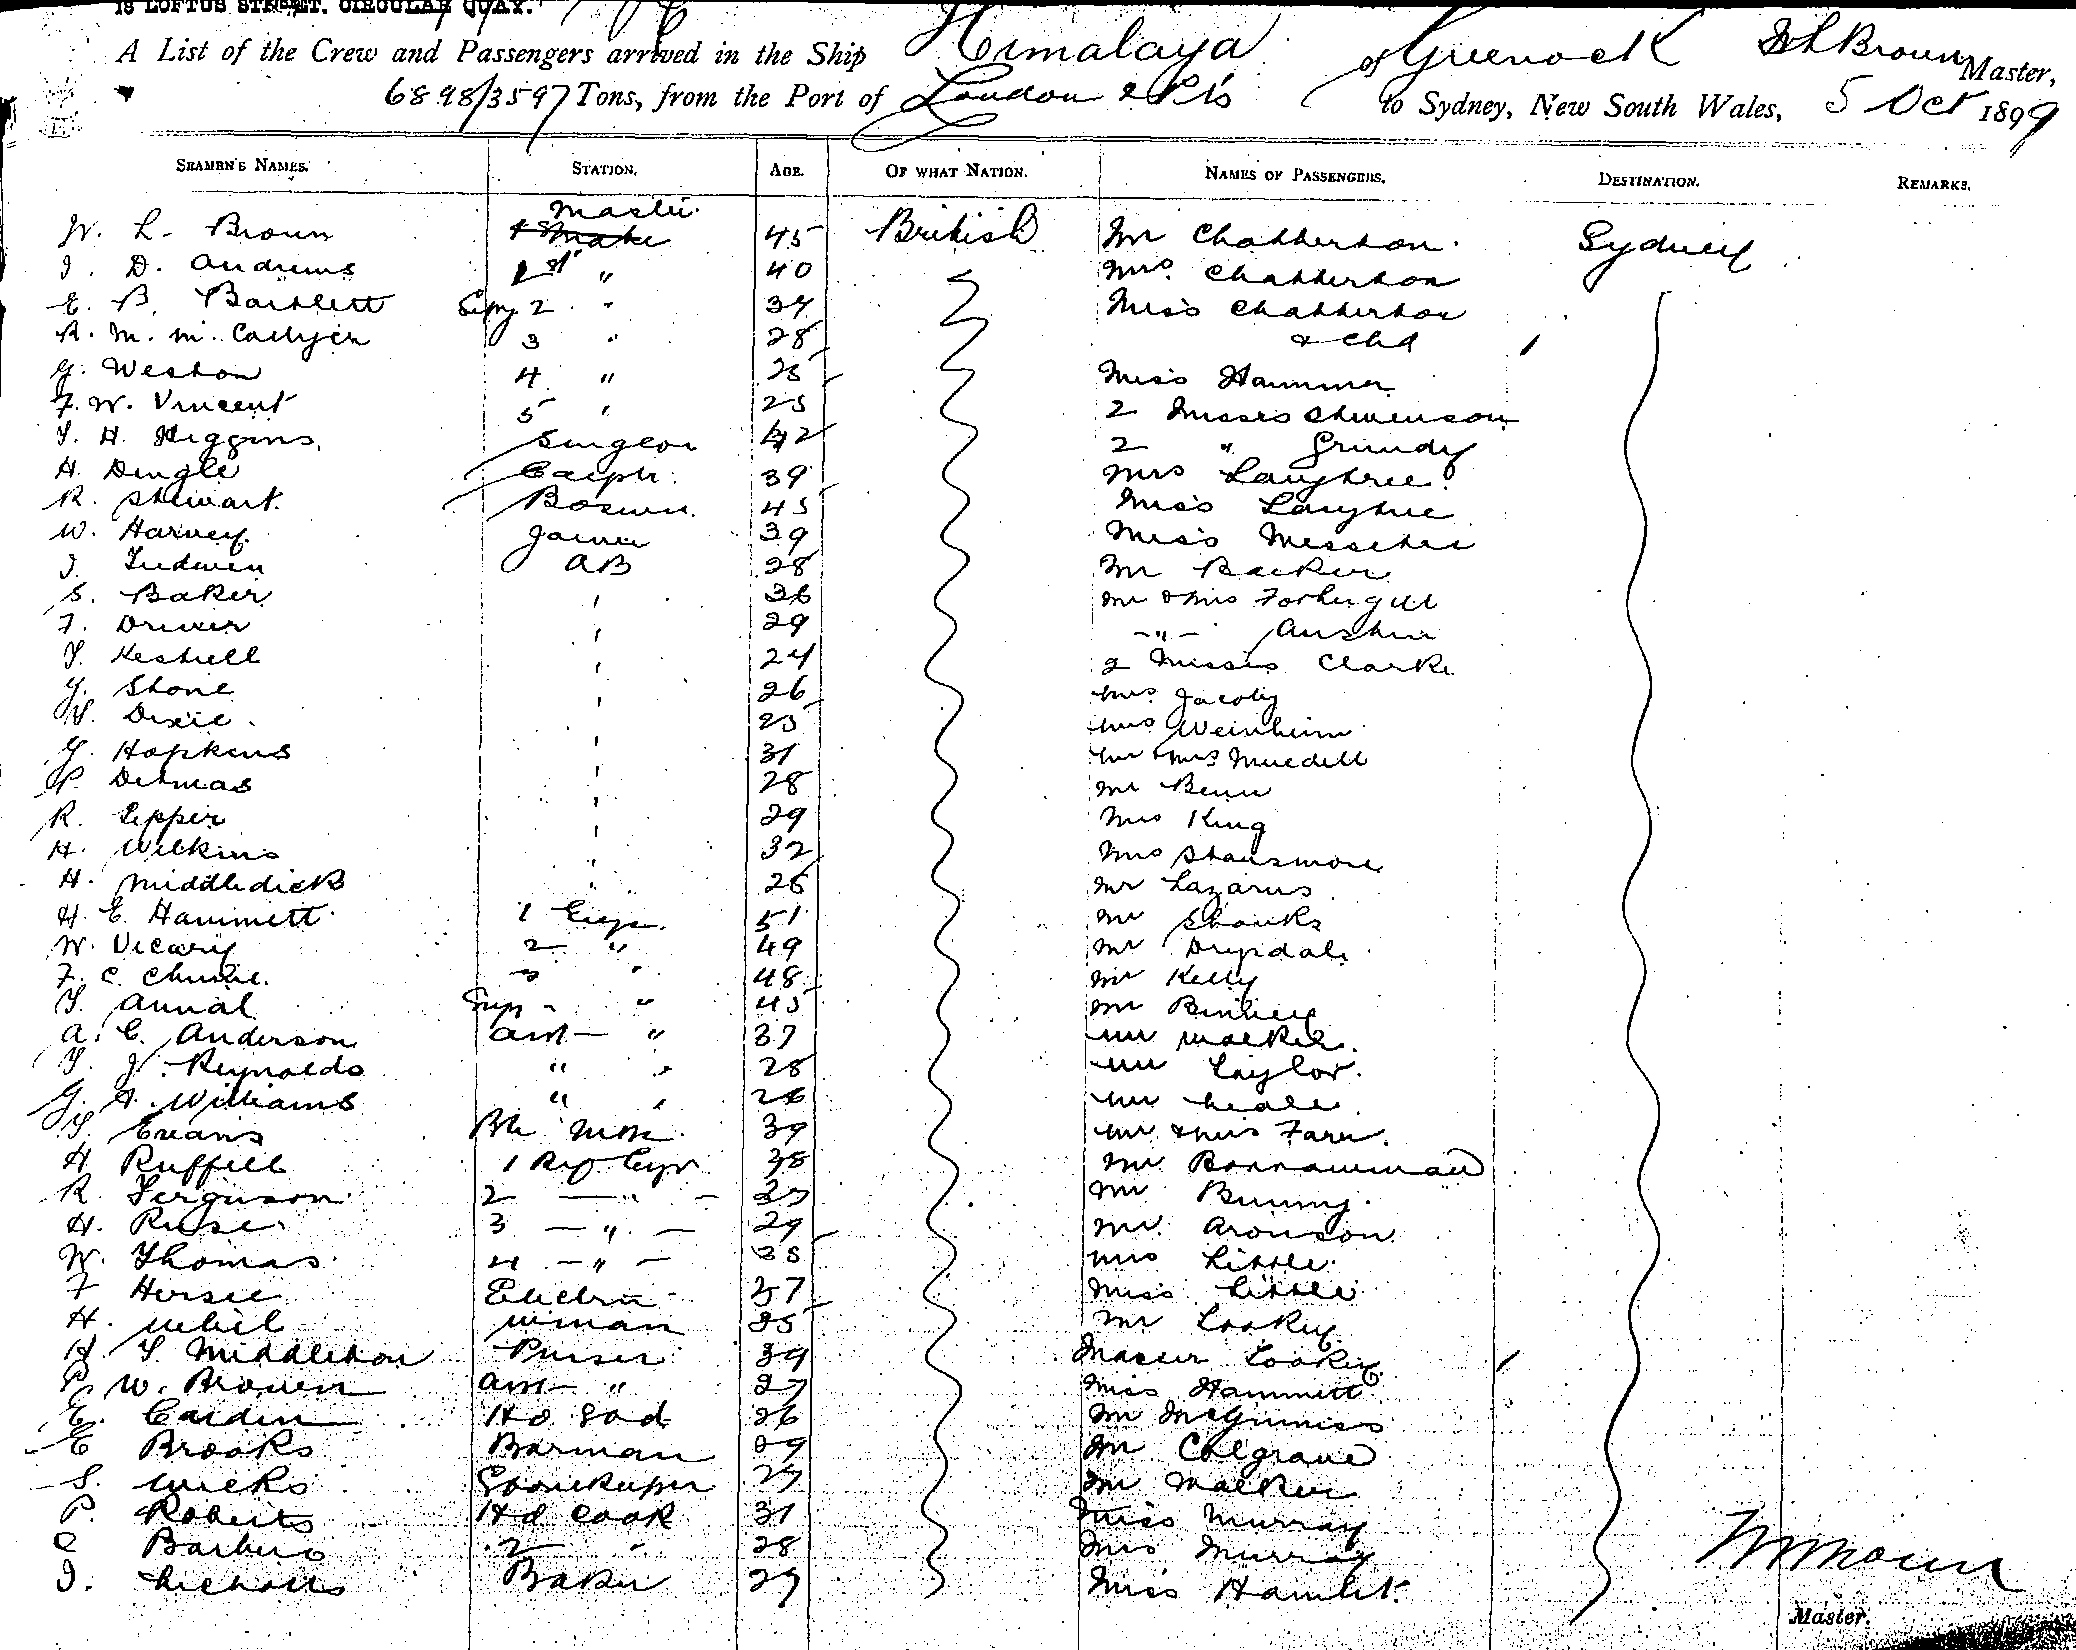 15 LOFTUS STREET. CIRCULAR QUAY.
A List of the Crew and Passengers arrived in the Ship Himalaya of Greenock Brown Master,
6898/3597 Tons, from the Port of London & Pts to Sydney, New South Wales, 5 Oct 1899
SEAMEN'S NAMES. STATION. AGE. OF WHAT NATION. NAMES OF PASSENGERS. DESTINATION. REMARKS.
Master
W. L. Brown 45 British Mr Chatterton Sydney
D. Andrews 1st " 40 Mrs Chatterton
E. B. Bartlett Supy 2 " 37 Miss Chatterton
R. M. M. 3 " 28 & Chd
G. Weston 4 " 25 Miss Hammer
F. W. Vincent 5 " 25 2 Misses Stevenson
T. H. Higgins Surgeon 42 2 " Grundy
H. Dingle Carptr. 39 Mrs Langtree
R. Stewart Boswn. 45 Miss Langtree
W. Harvey Joiner 39 Miss
AB 28 Mr Barker
S. Baker " 36 Mr & Mrs Fothergill
F. Driver " 29 -"- Austin
T. Kestrell " 24 2 Misses Clarke
G. Stone " 26 Mrs Jacoby
Dixie " 25 Mrs Weinheim
G. Hopkins " 31 Mr & Mrs
P. Detmas " 28 Mr Benn
R. Epper " 29 Mrs King
H. Wilkins " 32 Mrs Stansmore
H. Middledick " 25 Mr Lazarus
H. E. Hammett 1 Engr. 51 Mr Shanks
W. Vicary 2 " 49 Mr Drysdale
F. C. 3 " 48 Mr Kelly
T. Annal Supy " 45 Mr
A. C. Anderson Asst " 37 Mr Walker
T. J. Reynolds " " 28 Mr Taylor
G. A. Williams " " 26 Mr
T. Evans 39 Mr & Mrs Farr
H. Ruffell 1 Rfg Engr 38 Mr Borrowman
R. Ferguson 2 -"- Mr Bunny
H. Ruse 3 -"- 29 Mr Aronson
W. Thomas 4 -"- 35 Mrs Little
F Hersee Electrn 37 Miss Little
H. 35 Mr Lookey
H. T. Middleton Purser 39 Master Lookey
P. W. Brown Asst " 27 Miss Hammett
E. Carden 26 Mr McGinniss
E Brooks Barman 29 Mr Colgrave
S. Weeks Storekeeper 27 Mr Walker
P. Roberts Hd Cook 31 Miss Murray
C Barbero 2 " 28 Mrs Murray
J. Nicholls Baker 29 Miss Hamlet
Master.